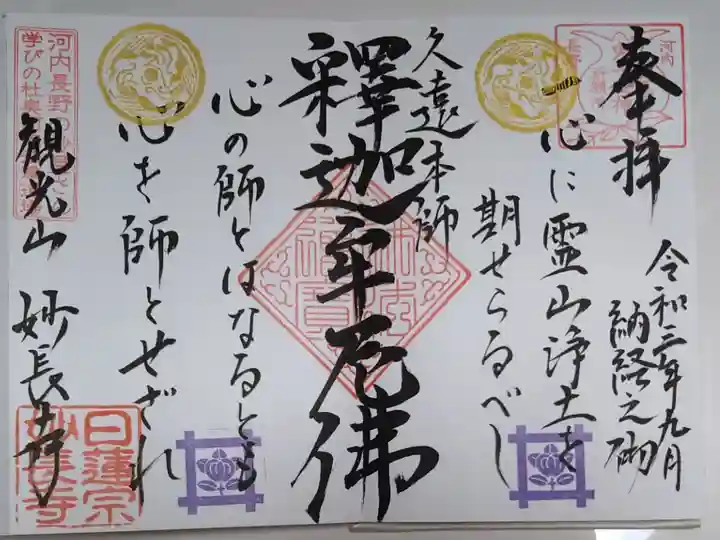 奉拝
令和三年九月
納経之砌
心に霊山浄土を
期せらるべし
久遠本師
釋迦牟尼佛
心の師とはなるとも
心を師とせざれ
観光山 妙長寺
河内長野
学びの杜
日蓮宗
妙長寺